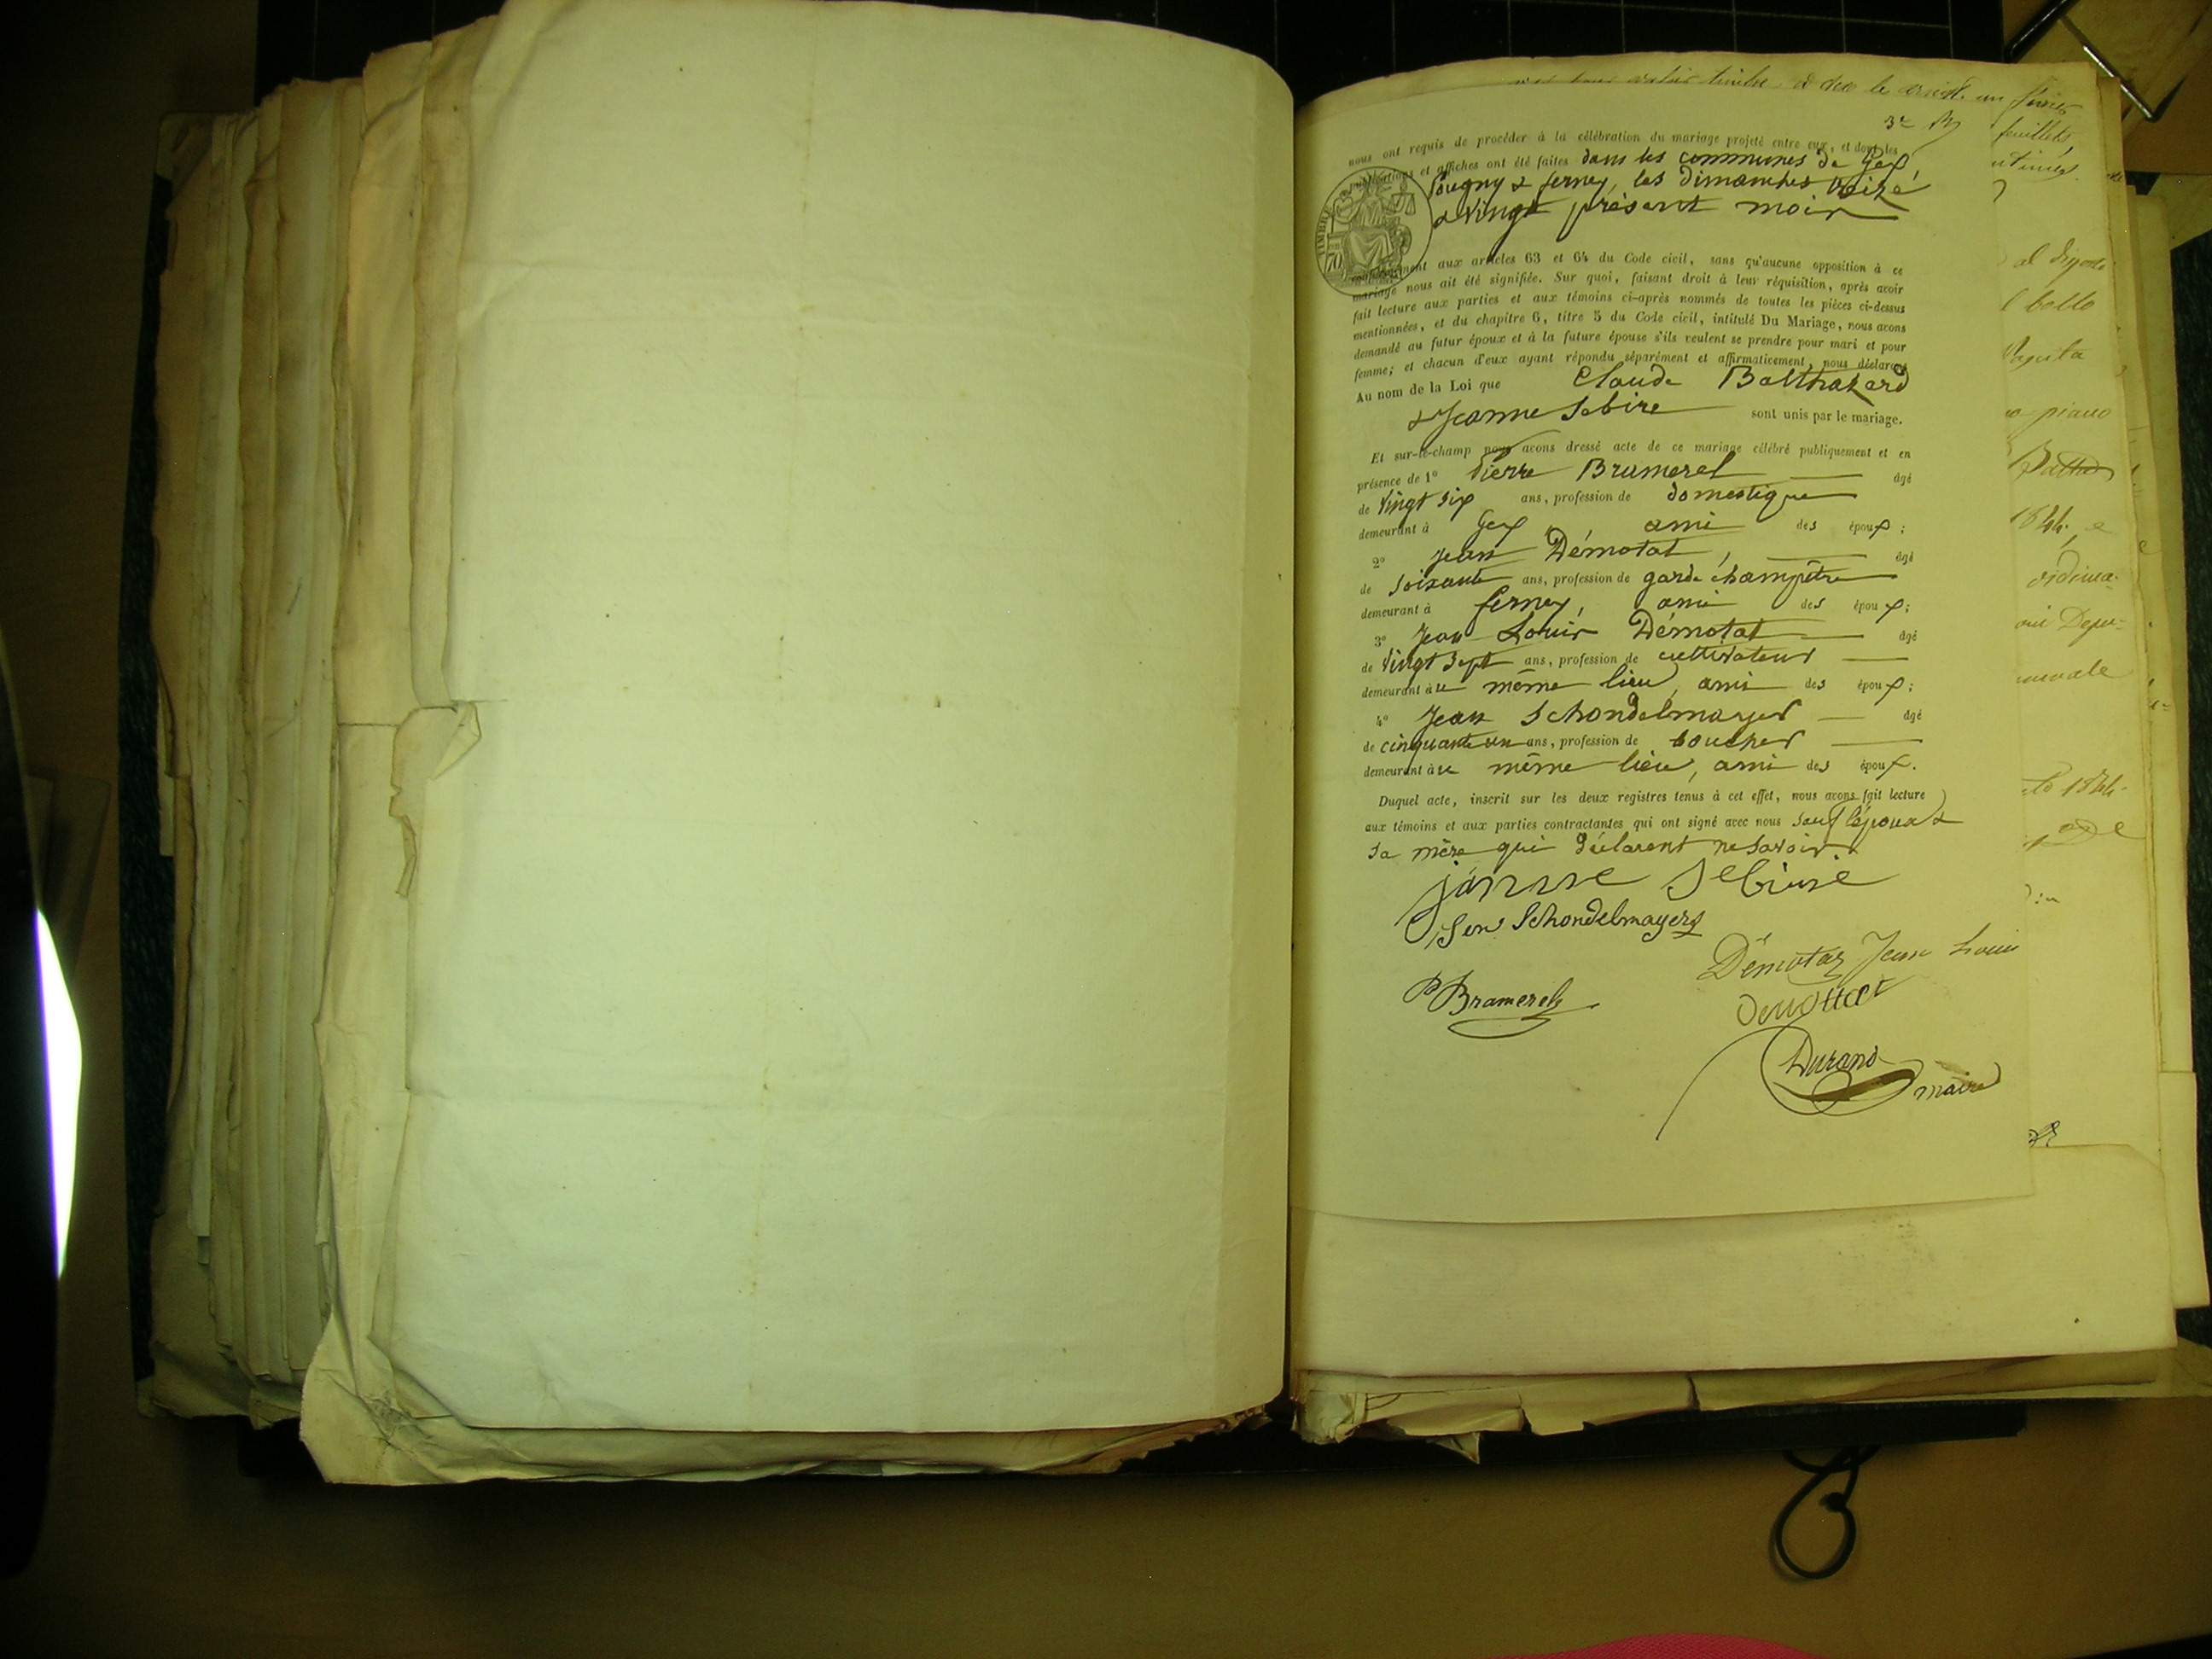 3e
nous ont requis de procéder à la célébration du mariage projeté entre eux, et dont les
publications et affiches ont été faites dans les communes de Gex
Pougny & ferney, les dimanches treize
& vingt présent mois
TIMBRE
70
conformément aux articles 63 et 64 du Code civil, sans qu'aucune opposition à ce
mariage nous ait été signifiée. Sur quoi, faisant droit à leur réquisition, après avoir
fait lecture aux parties et aux témoins ci-après nommés de toutes les pièces ci-dessus
mentionnées, et du chapitre 6, titre 5 du Code civil, intitulé Du Mariage, nous avons
demandé au futur époux et à la future épouse s'ils veulent se prendre pour mari et pour
femme; et chacun d'eux ayant répondu séparément et affirmativement, nous déclarons
Au nom de la Loi que Claude Balthazard
& Jeanne Sebire sont unis par le mariage.
Et sur-le-champ nous avons dressé acte de ce mariage célébré publiquement et en
présence de 1° Pierre Bramerel âgé
de Vingt six ans, profession de domestique
demeurant à Gex, ami des époux;
2° Jean Démotat, âgé
de soixante ans, profession de garde champêtre
demeurant à ferney, ami des époux;
3° Jean Louis Démotat âgé
de Vingt sept ans, profession de cultivateur
demeurant à ce même lieu, ami des époux;
4° Jean Schondelmayer âgé
de cinquante un ans, profession de boucher
demeurant à ce même lieu, ami des époux.
Duquel acte, inscrit sur les deux registres tenus à cet effet, nous avons fait lecture
aux témoins et aux parties contractantes qui ont signé avec nous sauf l'époux &
sa mère qui déclarent ne savoir.
Schondelmayer
Démotaz Jean Louis
P Bramerel
Durand
maire
feuillets
bollo
piano
1844